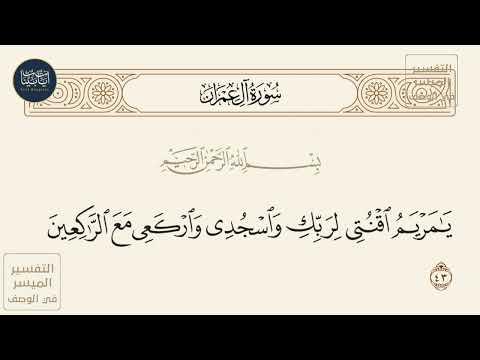 آيات بينات
سُورَةُ آلِ عِمْرَانَ
التفسير
الميسر
في الوصف
بِسْمِ ٱللَّهِ ٱلرَّحْمَٰنِ ٱلرَّحِيمِ
يَٰمَرْيَمُ ٱقْنُتِى لِرَبِّكِ وَٱسْجُدِى وَٱرْكَعِى مَعَ ٱلرَّٰكِعِينَ
٤٣
التفسير
الميسر
في الوصف